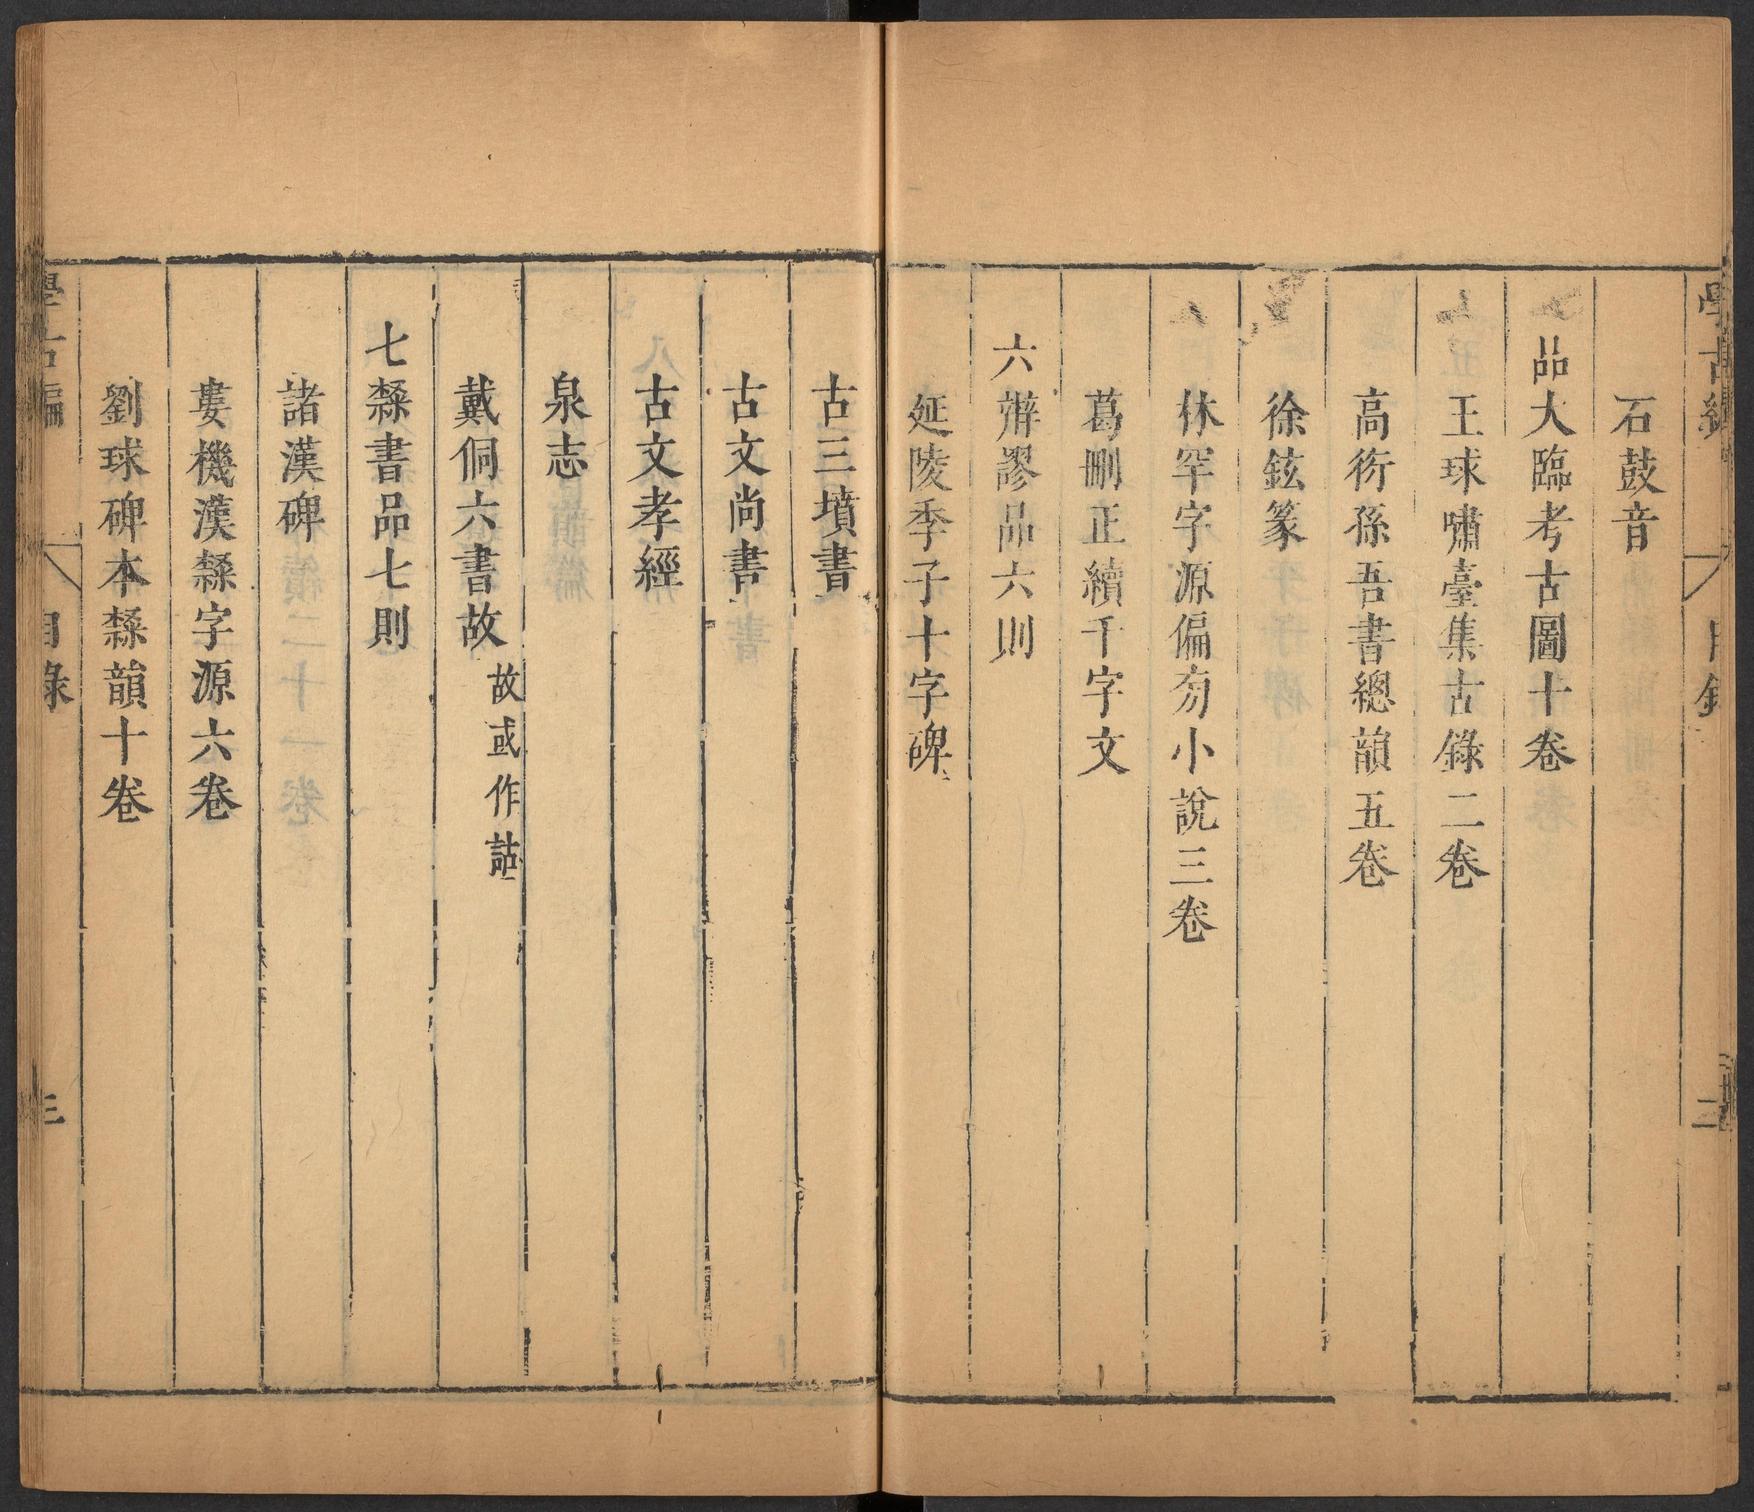 學古編
目錄
二
石鼓音
呂大臨考古圖十卷
王球嘯臺集古錄二卷
高衍孫五書總韻五卷
徐鉉篆
林罕字源偏旁小說三卷
葛刪正續千字文
六辨謬品六則
延陵季子十字碑
古三墳書
古文尚書
古文孝經
泉志
戴侗六書故 故或作詁
七隸書品七則
諸漢碑
婁機漢隸字源六卷
劉球碑本隸韻十卷
學古編
目錄
三